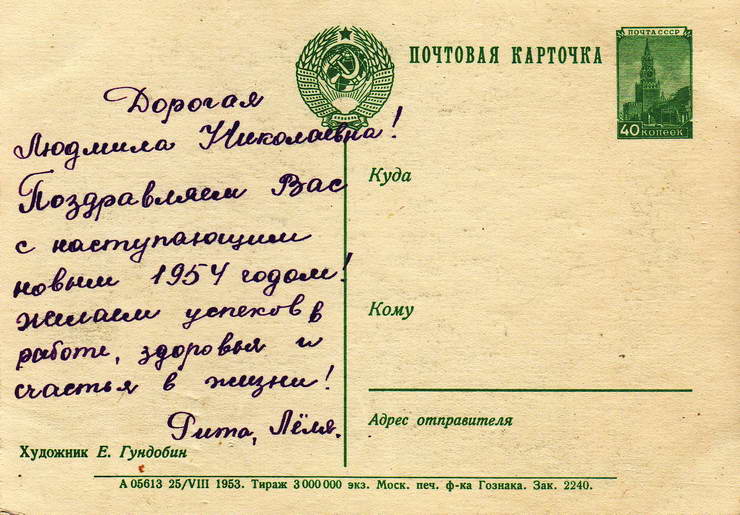 ПОЧТОВАЯ КАРТОЧКА
ПОЧТА СССР
40 КОПЕЕК
Дорогая
Людмила Николаевна!
Поздравляем Вас
с наступающим
новым 1954 годом!
желаем успехов в
работе, здоровья и
счастья в жизни!
Рита, Лёля.
Куда
Кому
Адрес отправителя
Художник Е. Гундобин
А 05613 25/VIII 1953. Тираж 3 000 000 экз. Моск. печ. ф-ка Гознака. Зак. 2240.